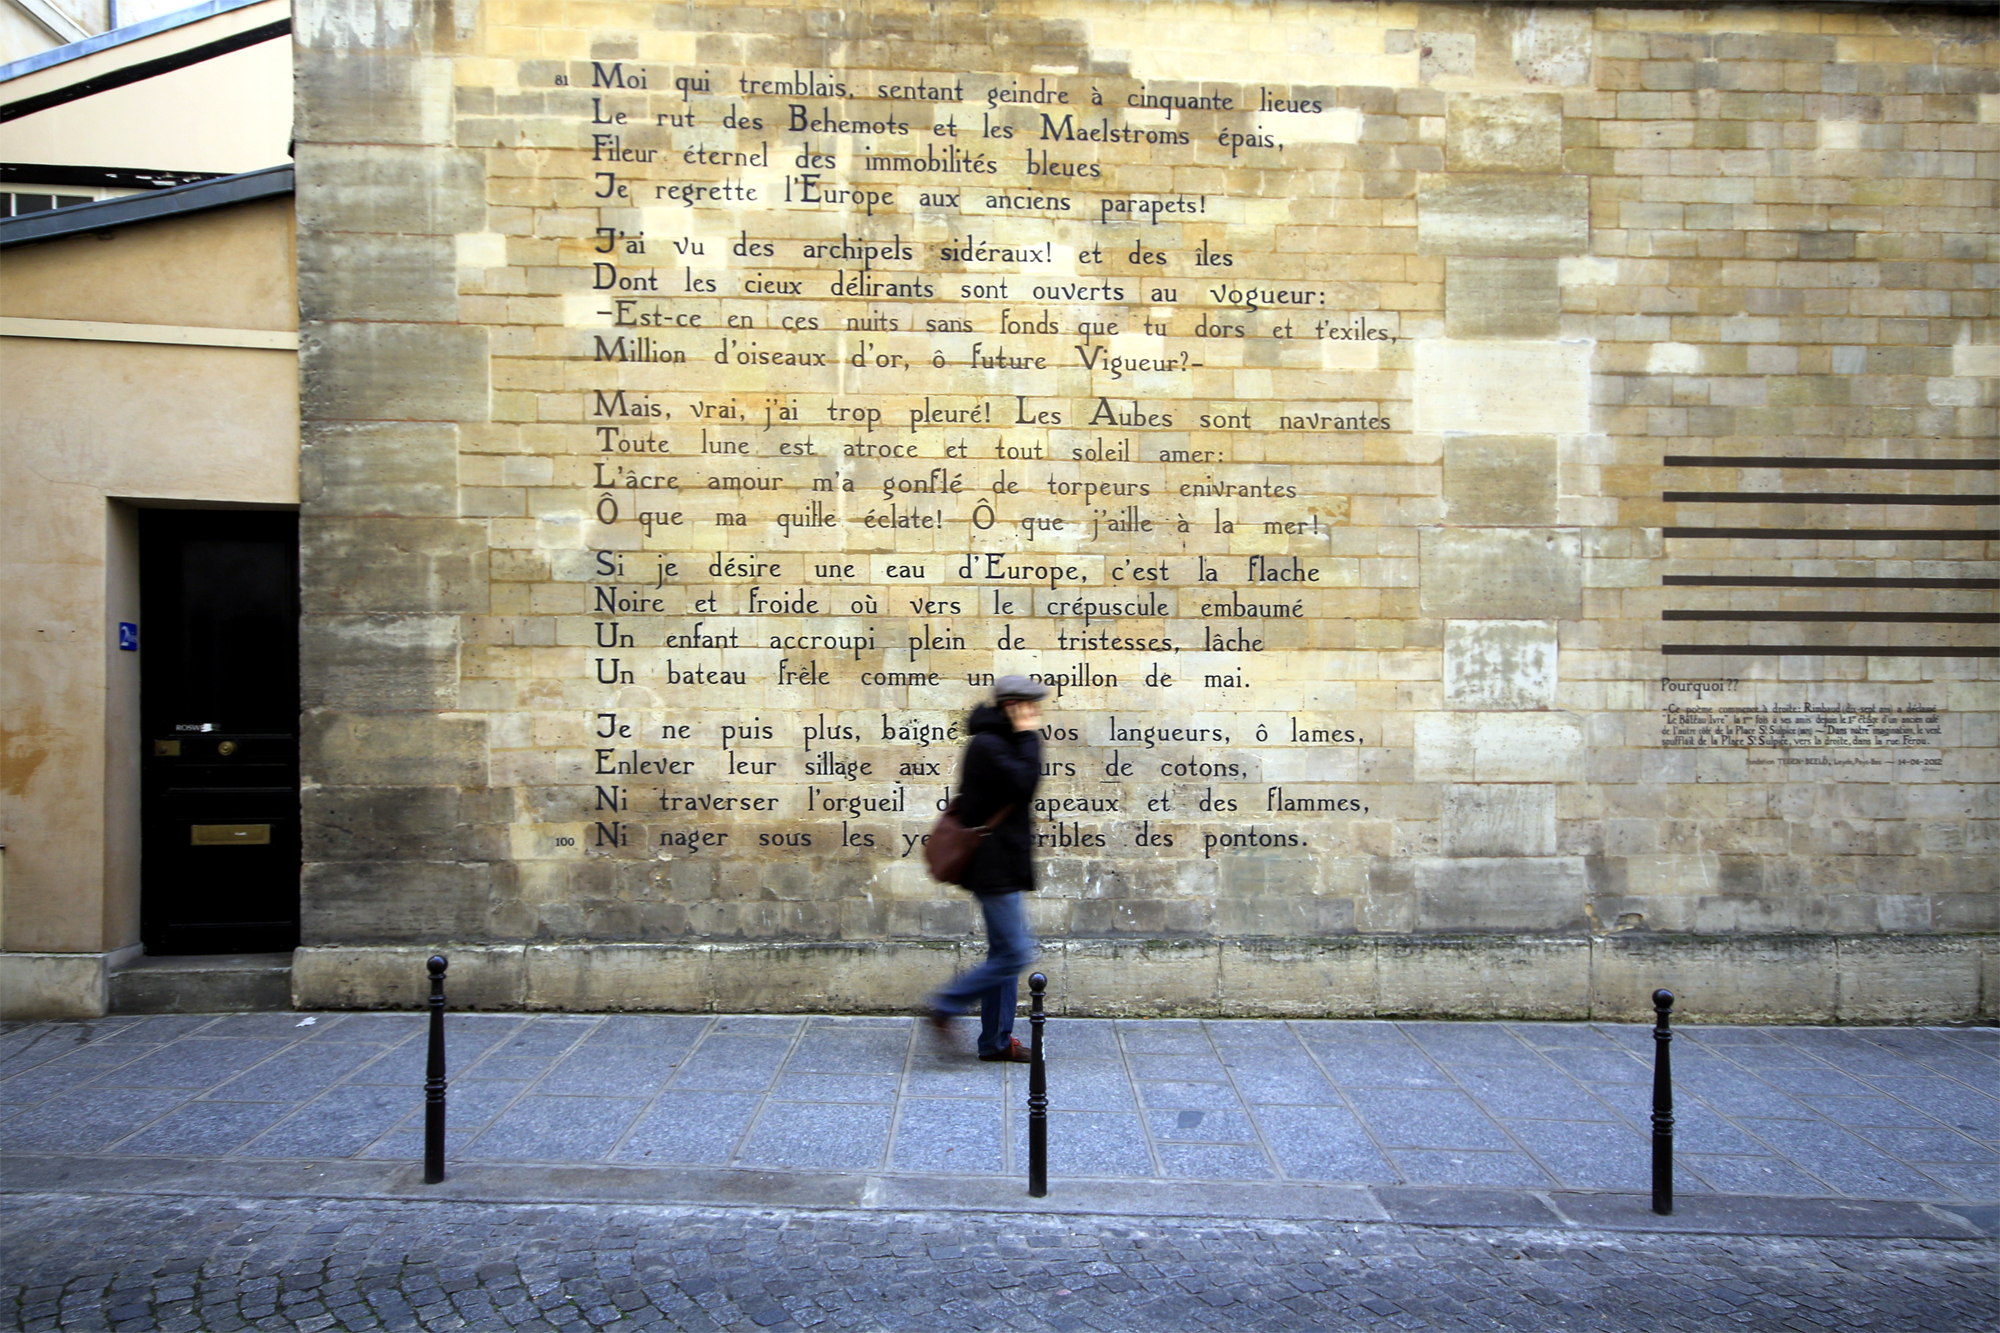 81 Moi qui tremblais, sentant geindre à cinquante lieues
Le rut des Behemots et les Maelstroms épais,
Fileur éternel des immobilités bleues
Je regrette l'Europe aux anciens parapets!
J'ai vu des archipels sidéraux! et des îles
Dont les cieux délirants sont ouverts au vogueur:
-Est-ce en ces nuits sans fonds que tu dors et t'exiles,
Million d'oiseaux d'or, ô future Vigueur?-
Mais, vrai, j'ai trop pleuré! Les Aubes sont navrantes
Toute lune est atroce et tout soleil amer:
L'âcre amour m'a gonflé de torpeurs enivrantes
Ô que ma quille éclate! Ô que j'aille à la mer!
Si je désire une eau d'Europe, c'est la flache
Noire et froide où vers le crépuscule embaumé
Un enfant accroupi plein de tristesses, lâche
Un bateau frêle comme un papillon de mai.
Je ne puis plus, baigné vos langueurs, ô lames,
Enlever leur sillage aux de cotons,
Ni traverser l'orgueil et des flammes,
100 Ni nager sous les des pontons.
Pourquoi??
-Ce poème commence à droite: Rimbaud (dix-sept ans) a déclamé
"Le Bateau Ivre" la 1ère fois à ses amis depuis le 1er étage d'un ancien café
de l'autre côté de la Place St Sulpice - Dans notre imagination, le vent
soufflait de la Place St Sulpice, vers la droite, dans la rue Férou.
Fondation TEGEN-BEELD, Leyde, Pays-Bas - 14-06-2012
2